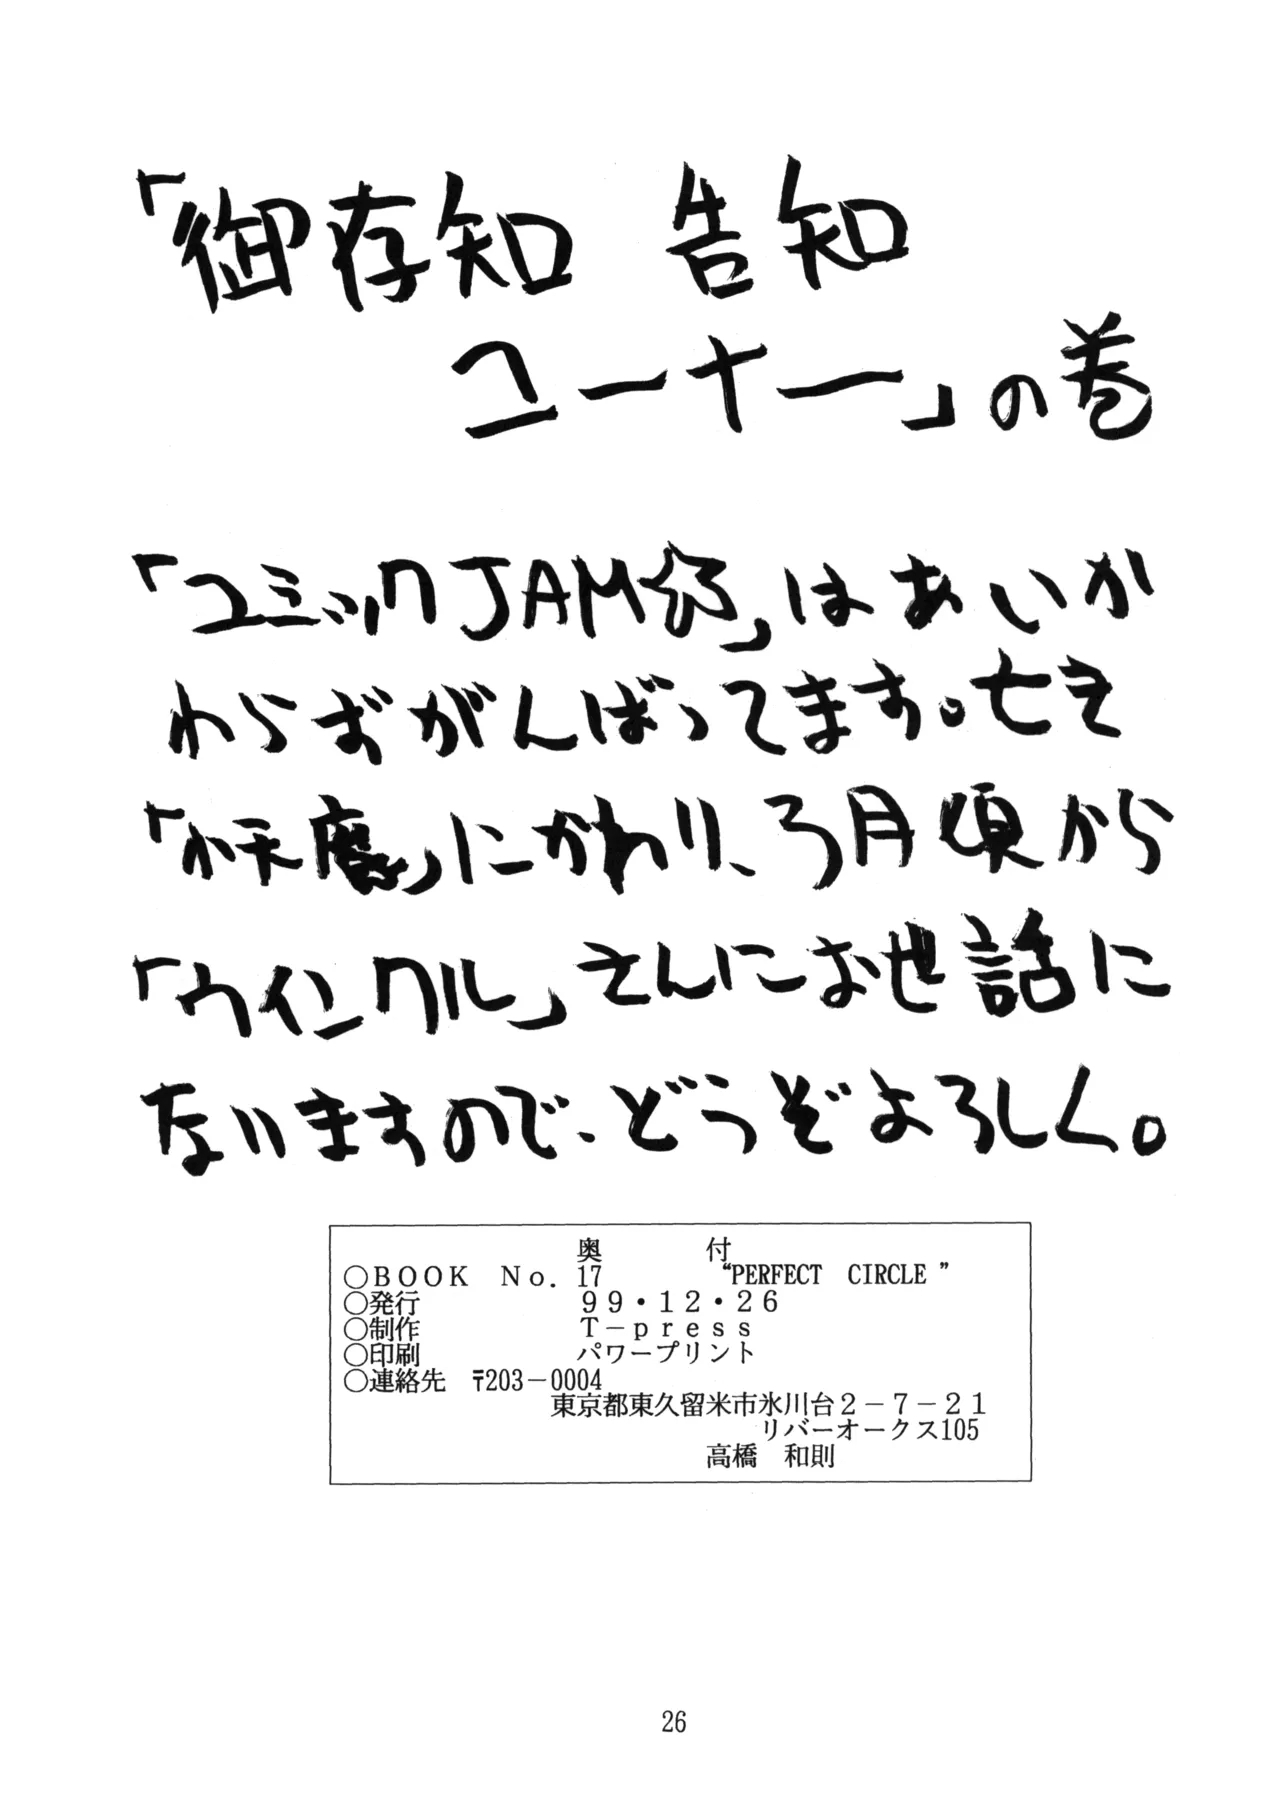 「御存知 告知
コーナー」の巻
「コミックJAM
」はあいか
わらずがんばってます。
にかわり、3月頃から
「ウインクル」さんにお世話に
なりますので、どうぞよろしく。
奥 付
○BOOK No. 17 “PERFECT CIRCLE ”
○発行 99・12・26
○制作 T-press
○印刷 パワープリント
○連絡先 〒203-0004
東京都東久留米市氷川台2-7-21
リバーオークス105
高橋 和則
26